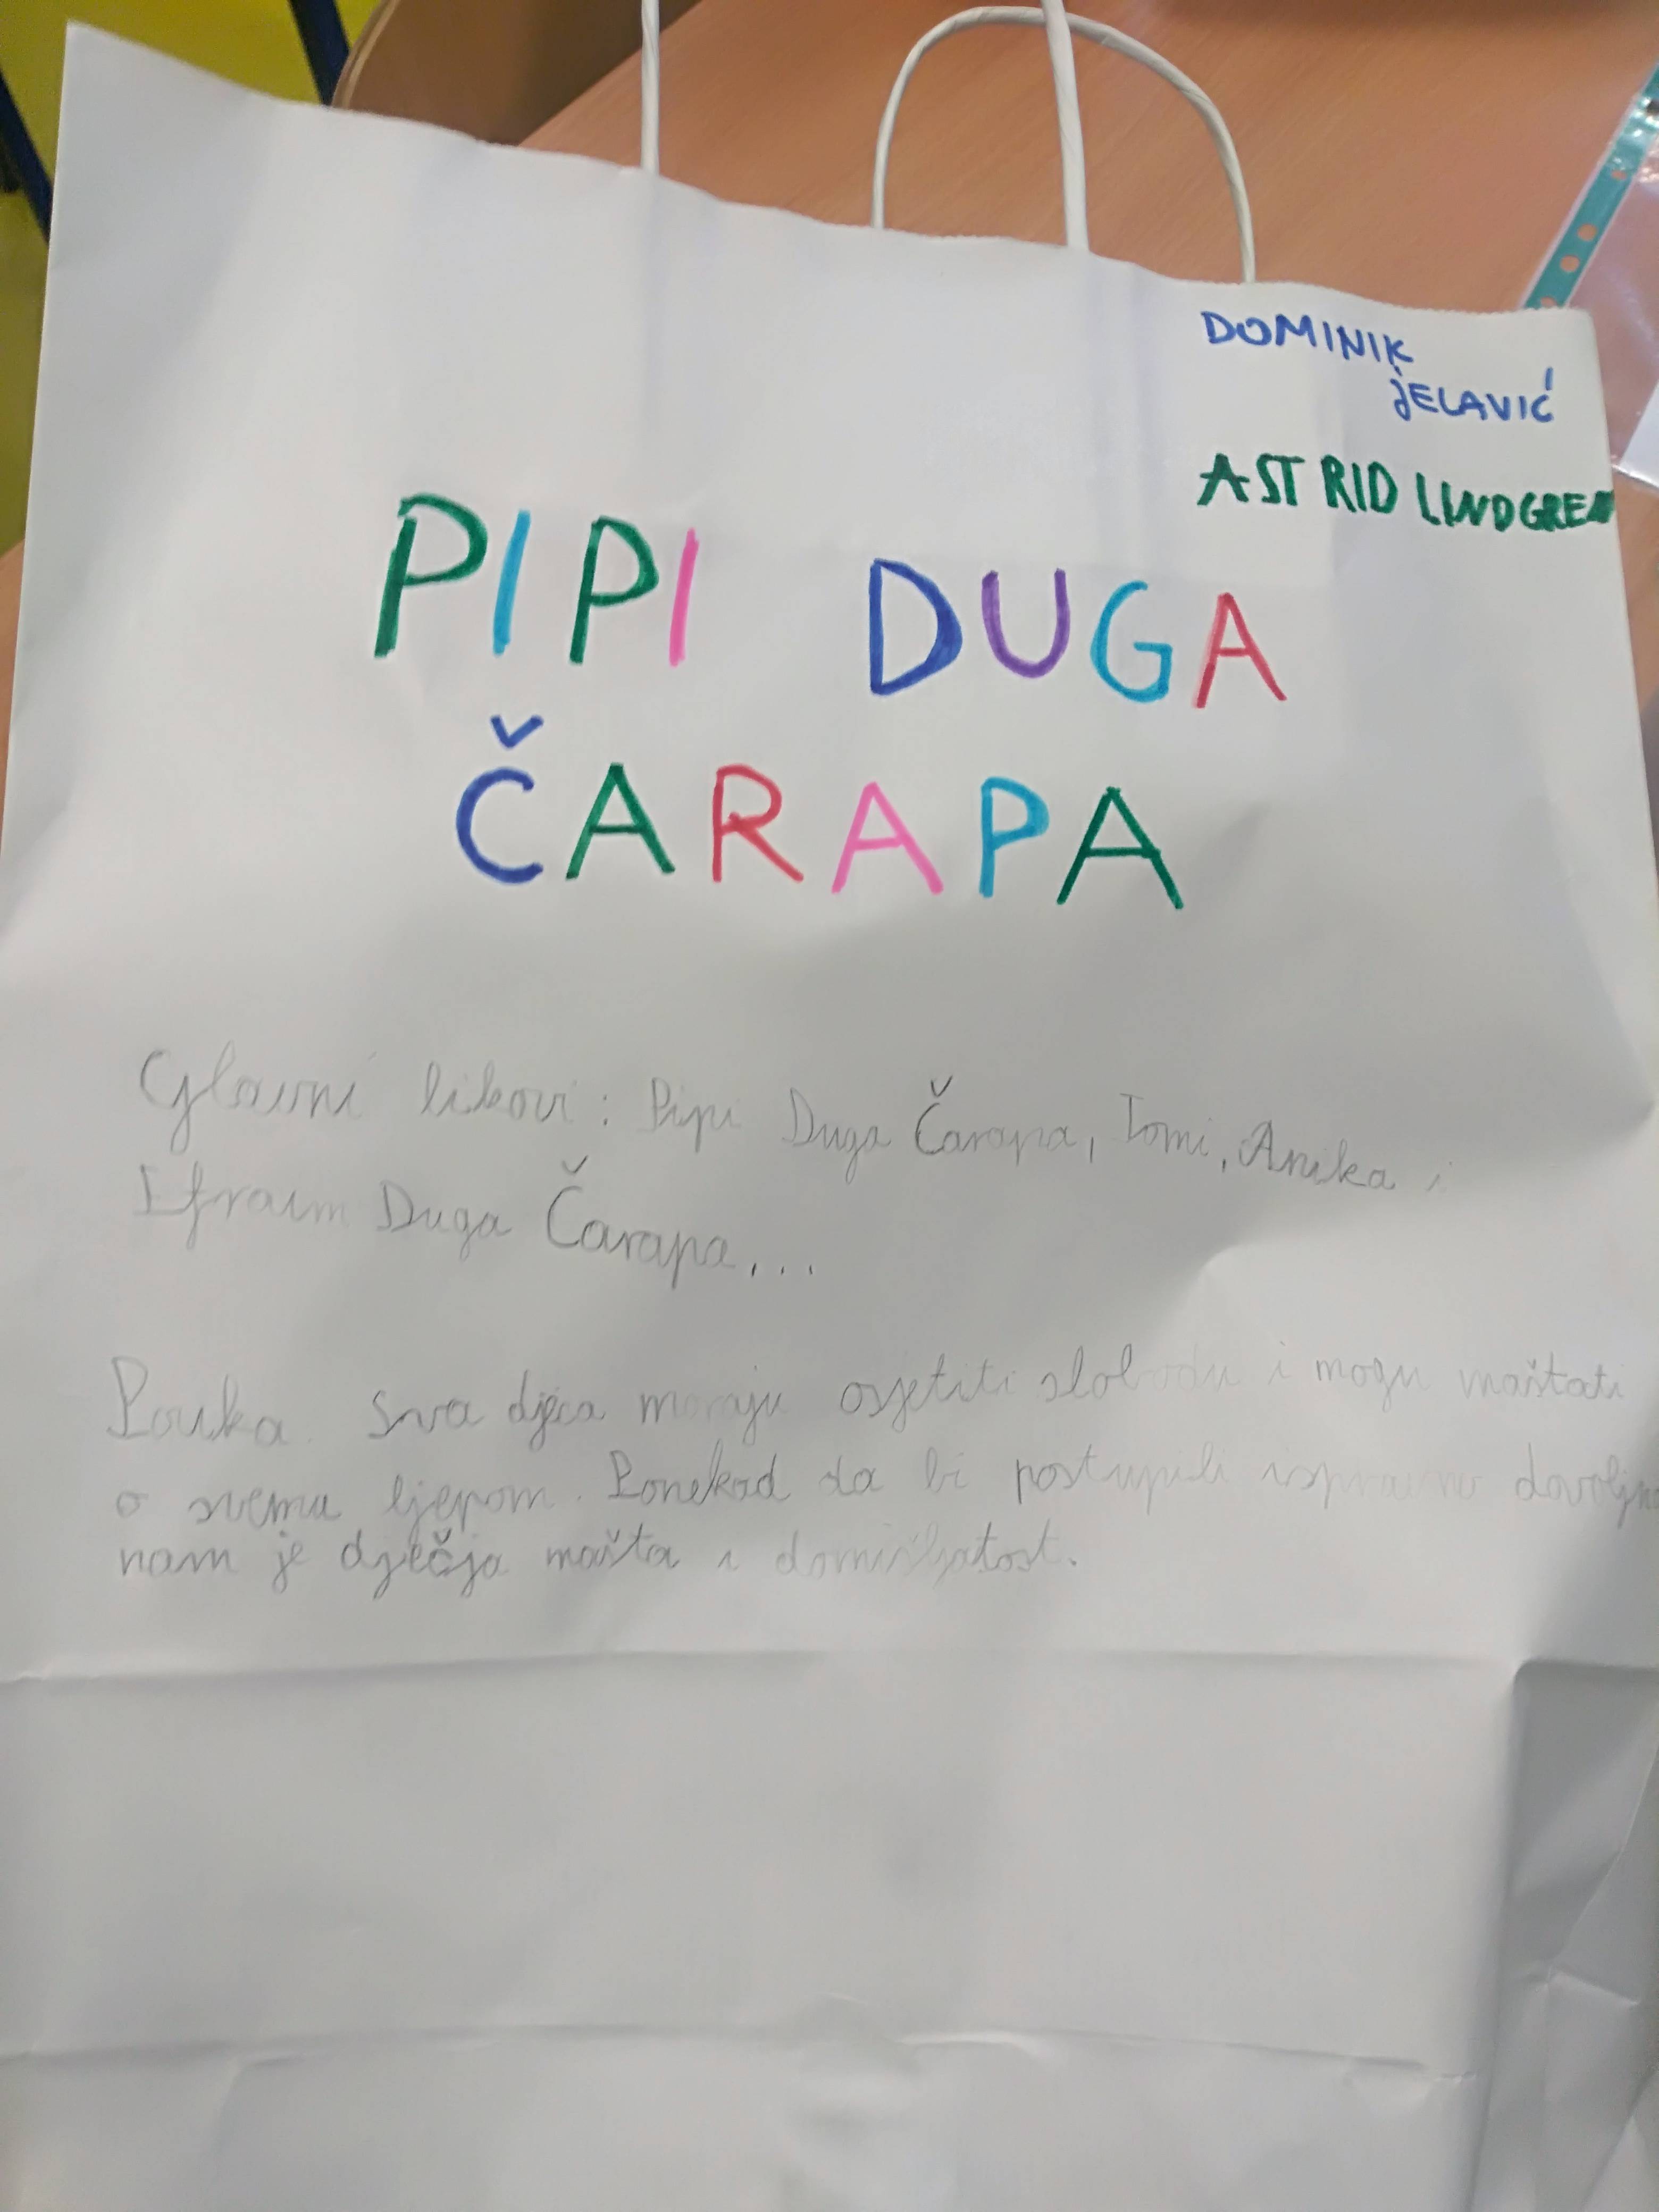 DOMINIK
JELAVIĆ
ASTRID LINDGREN
PIPI DUGA
ČARAPA
Glavni likovi: Pipi Duga Čarapa, Tomi, Anika i
Efraim Duga Čarapa,...
Pouka sva djeca moraju osjetiti slobodu i mogu maštati
o svemu ljepom. Ponekad da bi postupili ispravno dovoljno
nam je dječja mašta i domišljatost.